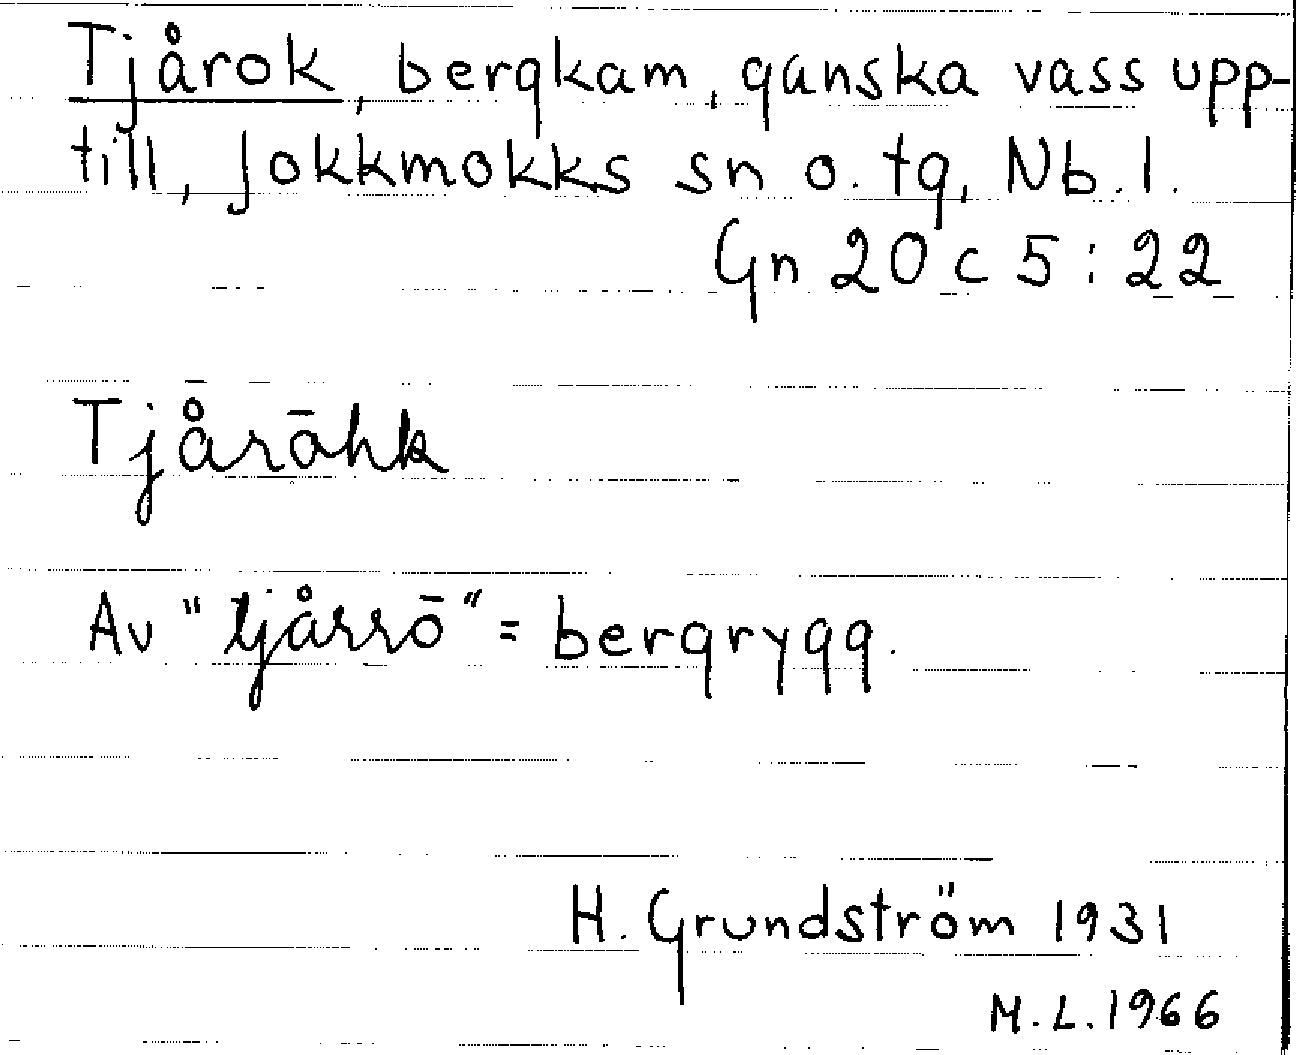 Tjårok, bergkam, ganska vass upp-
till, Jokkmokks sn o. tg, Nb. l.
Gn 20 c 5 : 22
Tjårōhk
Av "tjårrō" = bergrygg.
H. Grundström 1931
M. L. 1966